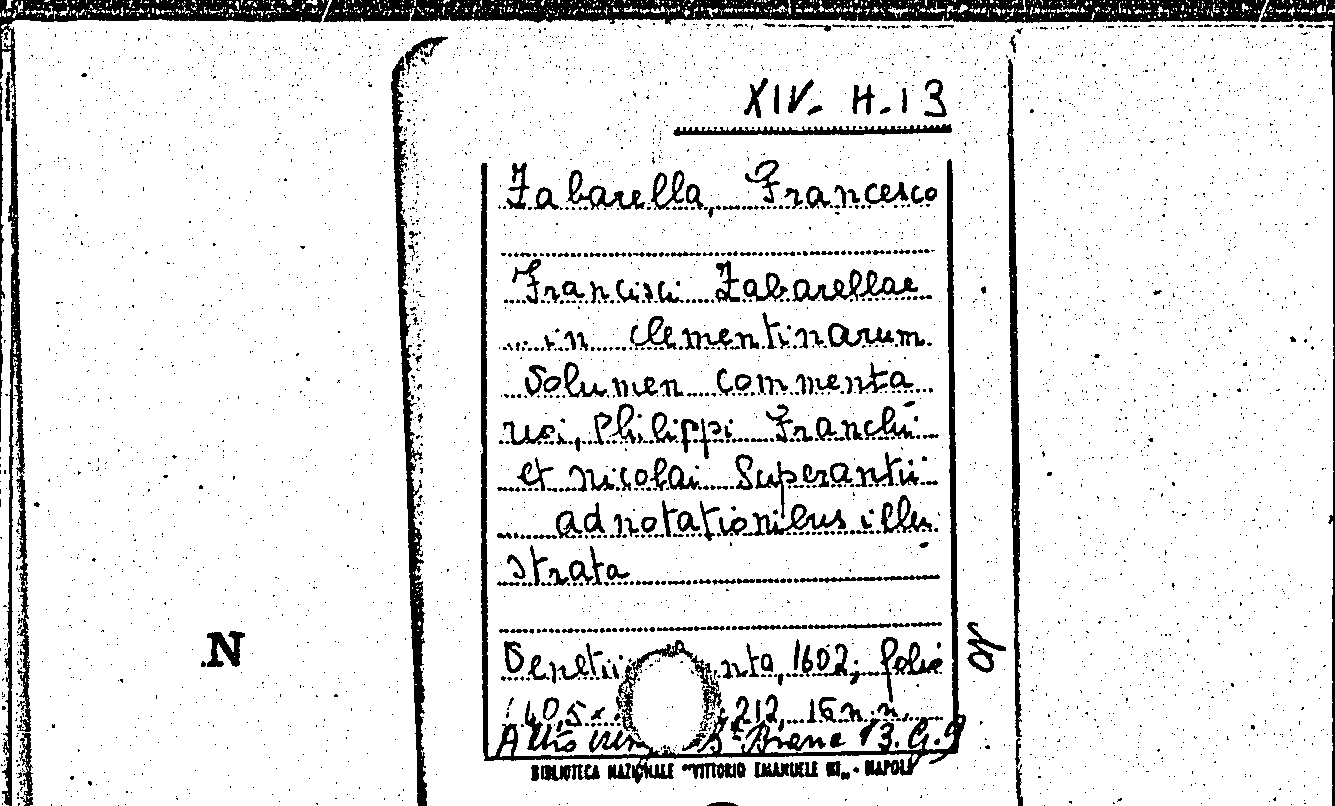 XIV. H. 13
Zabarella, Francesco
Francisci Zabarellae
... in Clementinarum
Volumen commenta
rii, Philippi Franchi
et Nicolai Superantii
adnotationibus illu
strata
Venetiis nta, 1602; folio
(40,5 x 212, 16 n. n.
Altro B. Branc. 13. G. 9
BIBLIOTECA NAZIONALE "VITTORIO EMANUELE III" - NAPOLI
N